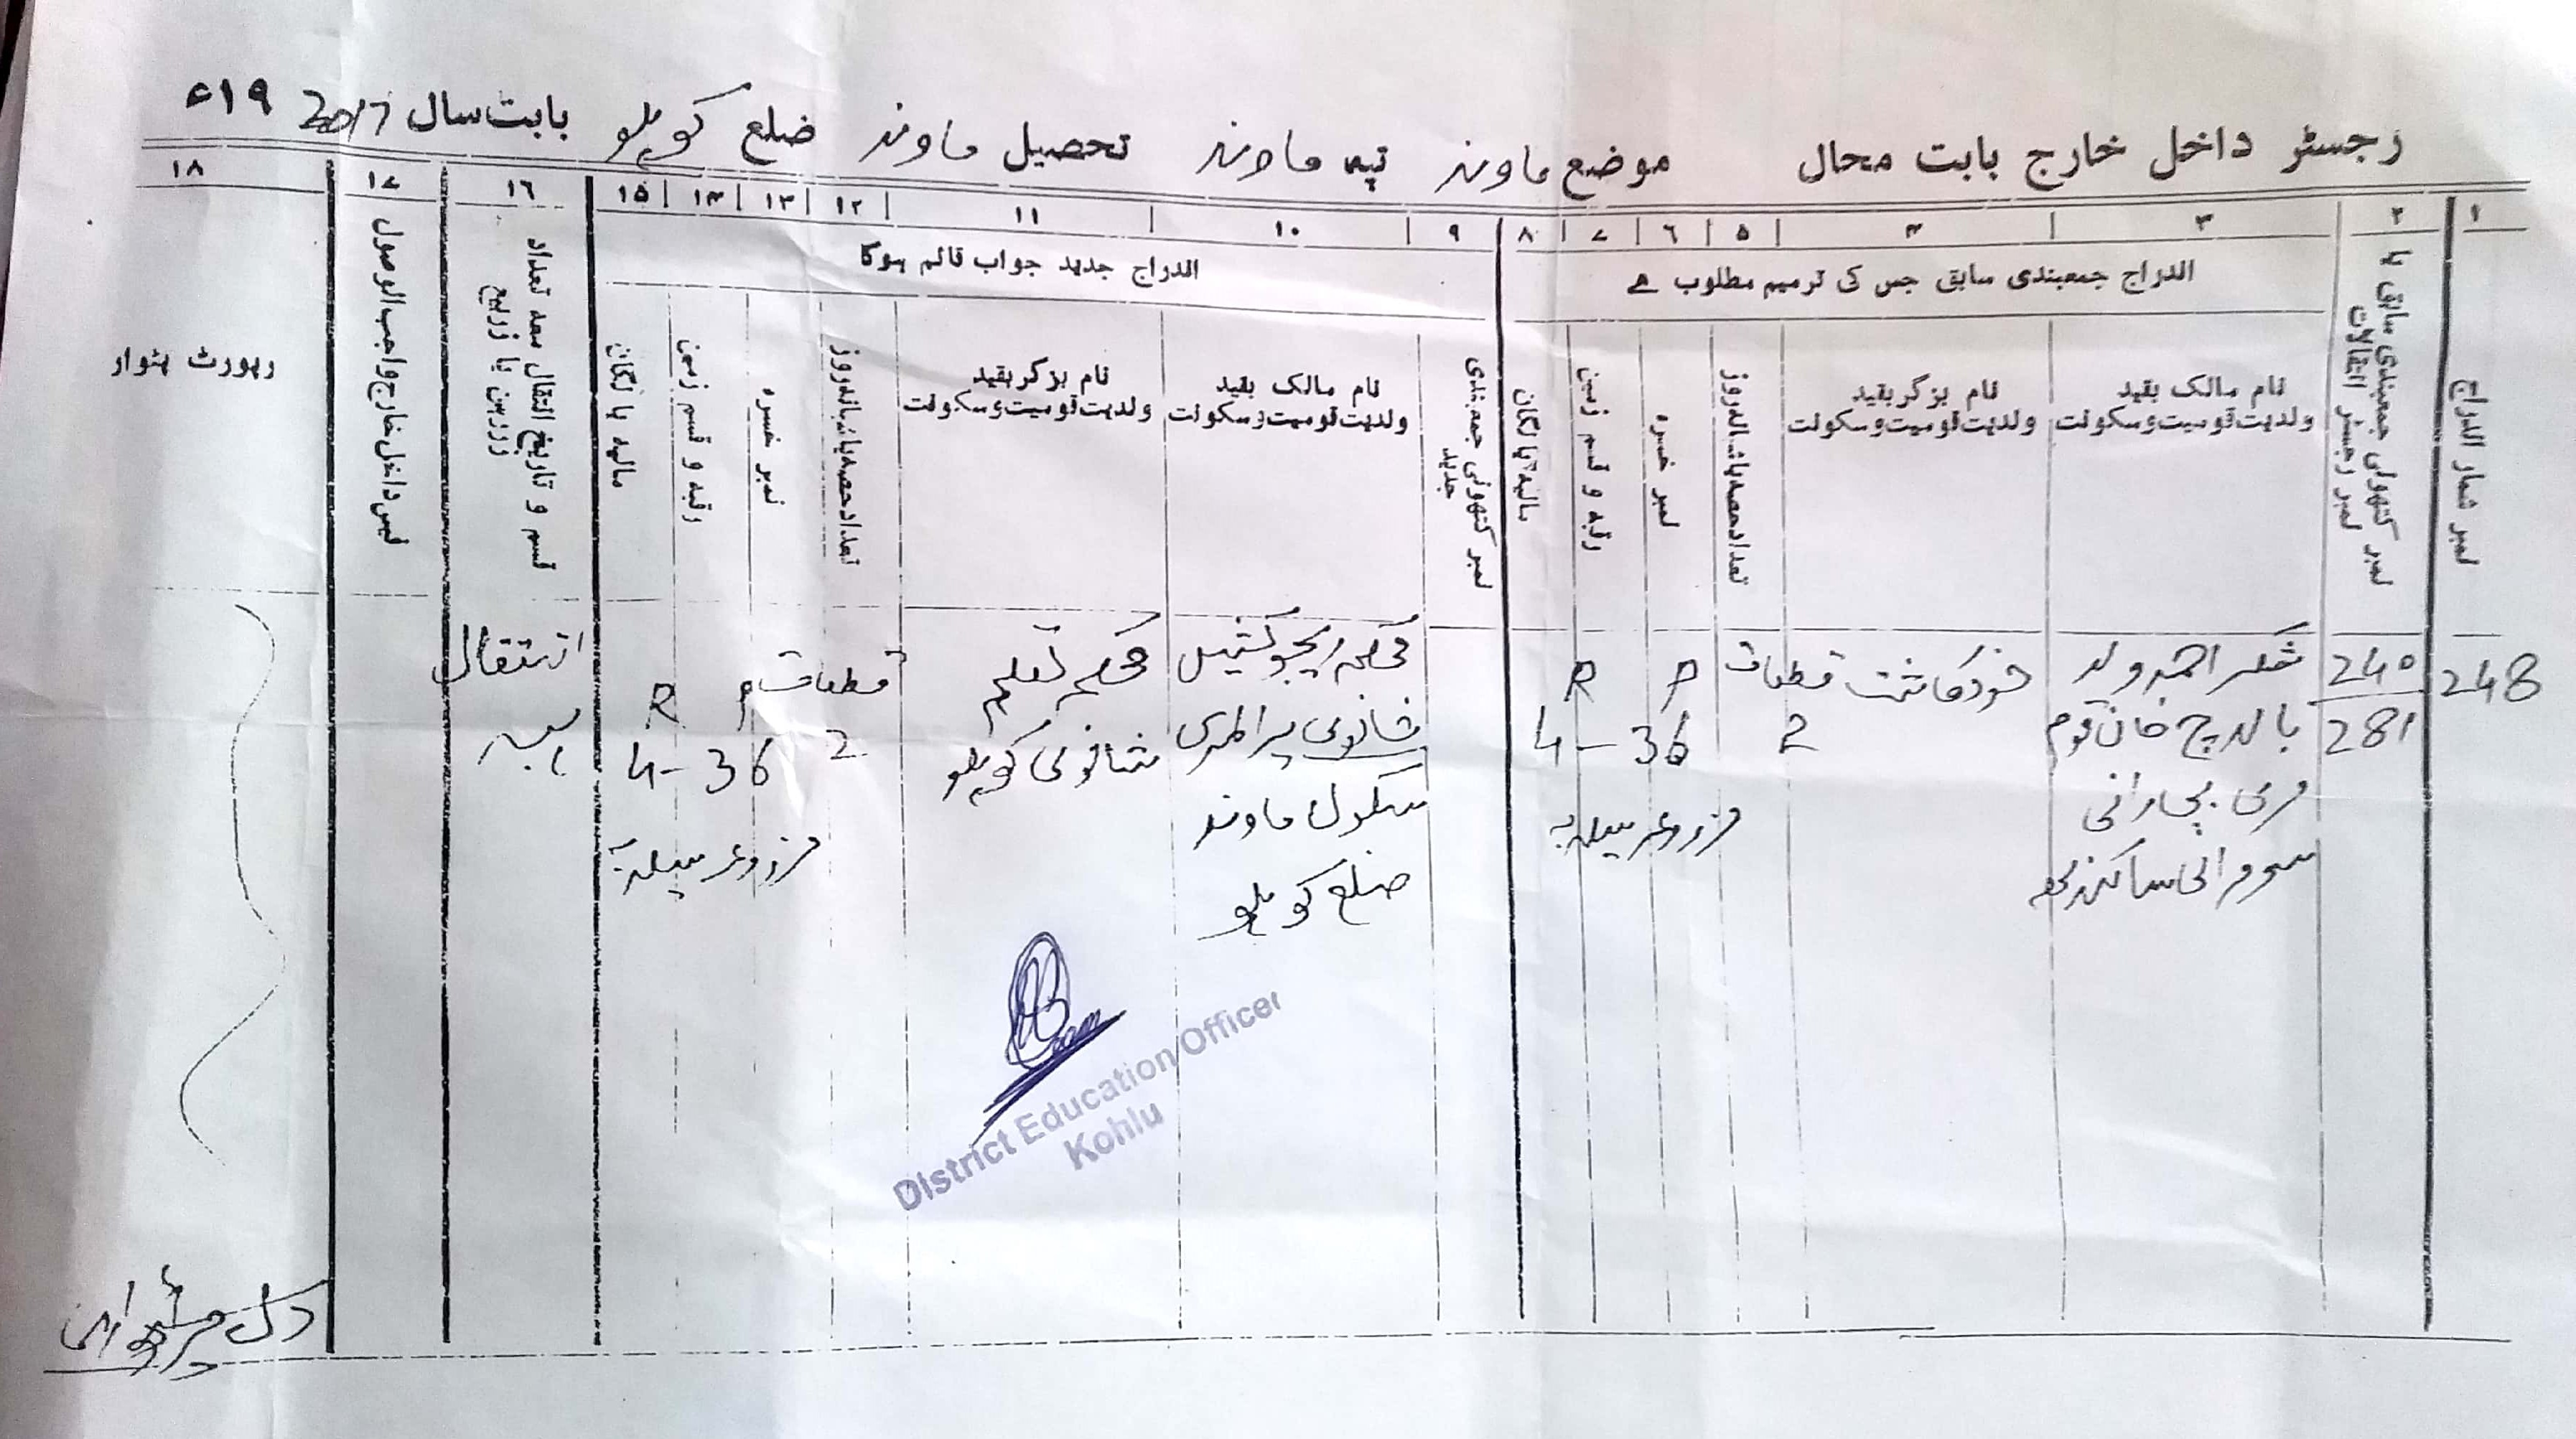 رجسٹر داخل خارج بابت محال موضع ماوند تپہ ماوند تحصیل ماوند ضلع کوہلو بابت سال 2017 ۱۹ء
۱ ۲ ۳ ۴ ۵ ۶ ۷ ۸ ۹ ۱۰ ۱۱ ۱۲ ۱۳ ۱۴ ۱۵ ۱۶ ۱۷ ۱۸
اندراج جمعبندی سابق جس کی ترمیم مطلوب ہے
اندراج جدید جواب قائم ہوگا
نمبر شمار اندراج
نمبر کتھونی جمعبندی سابق یا
نمبر رجسٹر انتقالات
نام مالک بقید
ولدیت قومیت و سکونت
نام بزگر بقید
ولدیت قومیت و سکونت
تعداد حصہ یا شبانہ روز
نمبر خسرہ
رقبہ و قسم زمین
مالیہ یا لگان
نمبر کتھونی جمعبندی
جدید
نام مالک بقید
ولدیت قومیت و سکونت
نام بزگر بقید
ولدیت قومیت و سکونت
تعداد حصہ یا شبانہ روز
نمبر خسرہ
رقبہ و قسم زمین
مالیہ یا لگان
قسم و تاریخ انتقال معہ تعداد
زر رہن یا زر بیع
فیس داخل خارج واجب الوصول
رپورٹ پٹوار
248
240
281
احمد ولد
خان قوم
مری بجارانی
خود کاشت
قطعات
2
P
R
4-36
مزروعہ سیلابہ
محکمہ ایجوکیشن
پرائمری
سکول ماوند
ضلع کوہلو
محکمہ تعلیم
ثانوی کوہلو
قطعات
2
P
R
4-36
مزروعہ سیلابہ
انتقال
ہبہ
District Education Officer
Kohlu